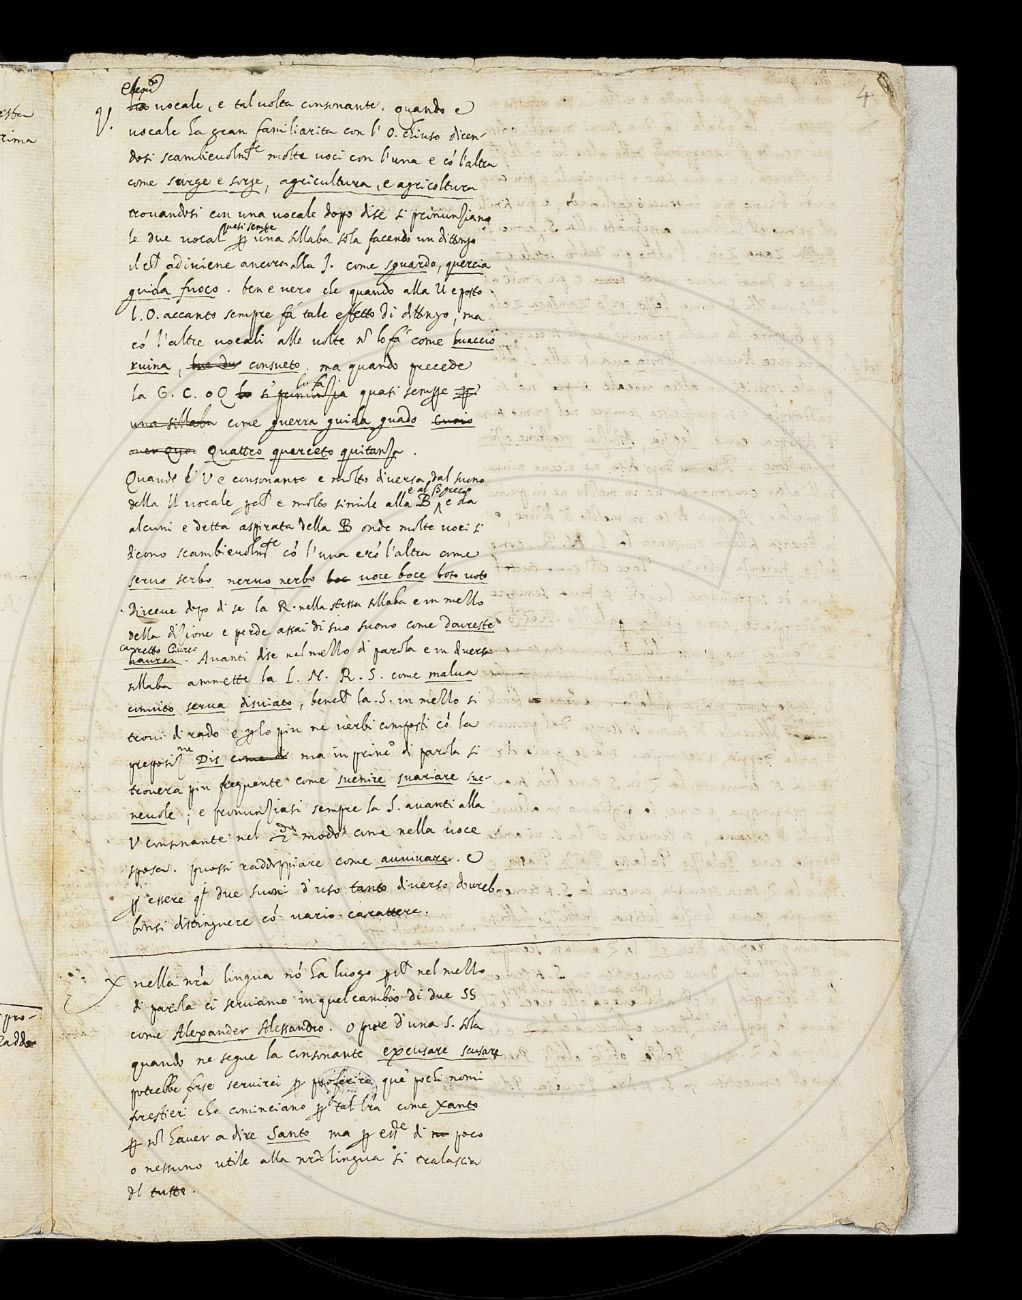 4
V. vocale, e tal volta consonante. Quando e
vocale ha gran familiarita con l' O. chiuso dicen-
dosi scambievolmte molte voci con l'una e cō l'altra
come surge e sorge, agricultura, e agricoltura
trovandosi con una vocale dopo di se si pronunziano
le due vocali quasi sempre ꝑ una sillaba sola facendo un dittongo
il che adiviene ancora alla I. come sguardo, quercia
guida fuoco. ben e vero che quando alla U e posto
l. O. accanto sempre fa tale effetto di dittongo, ma
cō l'altre vocali alle volte nō lo fa come
ruina, consueto. ma quando precede
la G. C. o Q lo fa quasi sempre
una sillaba come guerra guida guado cuoio
over quoi Quattro querceto quitanza.
Quando l' V e consonante e molto diversa dal suono
della U vocale, e molto simile alla B e al B greco e da
alcuni e detta aspirata della B onde molte voci si
dicono scambievolmte cō l'una e cō l'altra come
servo serbo nervo nerbo boc voce boce boto voto
. Riceve dopo di se la R. nella stessa sillaba e in mezzo
della dizione e perde assai di suo suono come dovreste
cavretto
havrei. Avanti di se nel mezzo di parola e in diversa
sillaba ammette la L. N. R. S. come malva
convito serva disviato, benche la S. in mezzo si
trovi di rado e ꝑ lo piu ne verbi composti cō la
preposizne Dis come di ma in princo di parola si
trovera piu frequente come svenire svariare sve-
nevole; e pronunziasi sempre la S. avanti alla
V consonante nel 2do modo come nella voce
sposa. puossi raddoppiare come avvivare. e
ꝑ essere qti due suoni d'uso tanto diverso dovreb-
bonsi distinguere cō vario carattere.
X nella nrā lingua nō ha luogo ꝑche nel mezzo
di parola ci serviamo in quel cambio di due SS
come Alexander Alessandro. o pure d'una S. sola
quando ne segue la consonante excusare scusare
potrebbe forse servirci ꝑ proferire que pochi nomi
forestieri che cominciano ꝑ tal lrā come Xanto
ꝑ nō haver a dire Santo ma ꝑ esse di no poco
o nessuno utile alla nrā lingua si tralascia
del tutto.